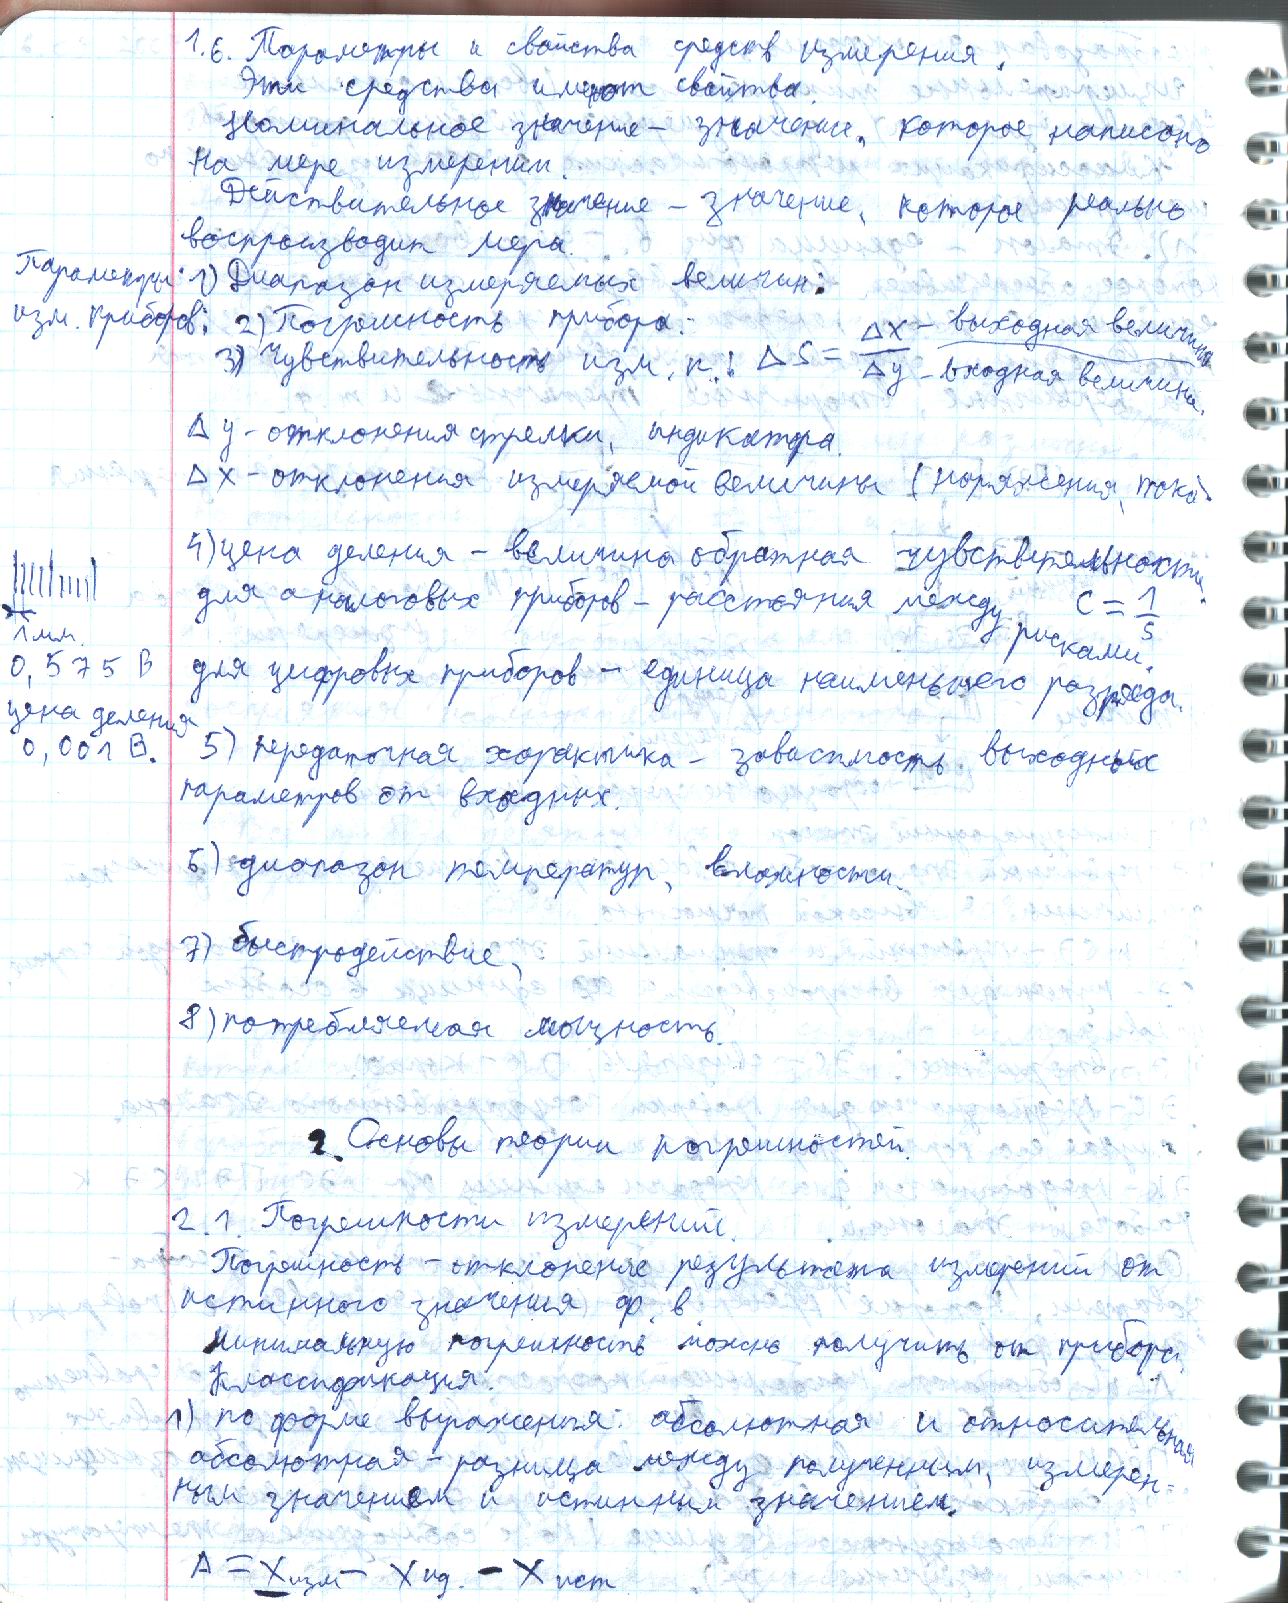 1.6. Параметры и свойства средств измерения.
Эти средства имеют свойства.
Номинальное значение – значение, которое написано
на мере измерении.
Действительное значение – значение, которое реально
воспроизводит мера.
Параметры 1) Диапазон измеряемых величин:
изм. приборов: 2) Погрешность прибора:
3) Чувствительность изм. п.: ΔS = Δx/Δy – выходная величина – входная величина.
Δy – отклонения стрелки, индикатора.
Δx – отклонения измеряемой величины (напряжения, тока.
4) цена деления – величина обратная чувствительности.
для аналоговых приборов – расстояния между рисками. C = 1/S
1 мм.
0,575 В для цифровых приборов – единица наименьшего разряда.
цена деления
0,001 В. 5) передаточная – зависимость выходных
параметров от входных.
6) диапазон температур, влажности.
7) быстродействие,
8) потребляемая мощность.
2. Основы теории погрешностей.
2.1. Погрешности измерений.
Погрешность – отклонение результата измерений от
истинного значения ф. в
минимальную погрешность можно получить от прибора.
Классификация.
1) по форме выражения: абсолютная и относительная
абсолютная – разница между полученным, измерен-
ным значением и истинным значением.
Δ = Xизм – Xид. – Xист